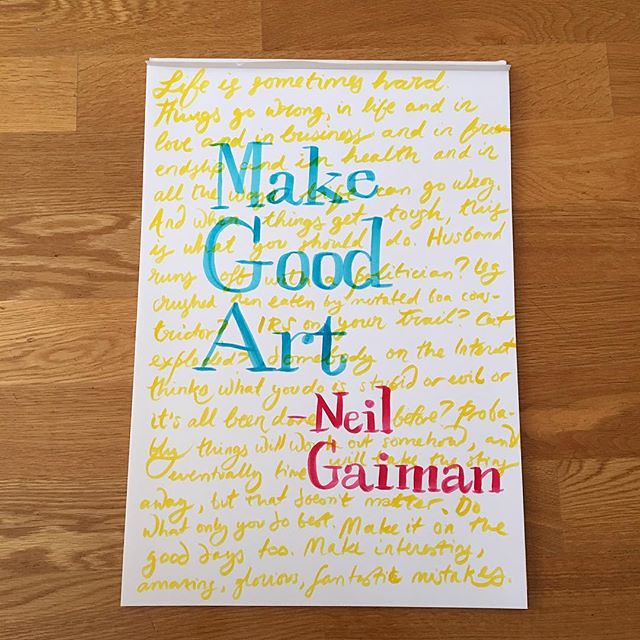 Make
Good
Art
-Neil
Gaiman
Life is sometimes hard.
Things go wrong, in life and in
love and in business and in fri-
endship and in health and in
all the ways life can go wrong.
And when things get tough, this
is what you should do. Husband
runs off with a politician? Leg
crushed then eaten by mutated boa cons-
trictor? IRS on your trail? Cat
exploded? Somebody on the Internet
thinks what you do is stupid or evil or
it's all been done before? Proba-
bly things will work out somehow, and
eventually time will take the sting
away, but that doesn't matter. Do
what only you do best. Make it on the
good days too. Make interesting,
amazing, glorious, fantastic mistakes.